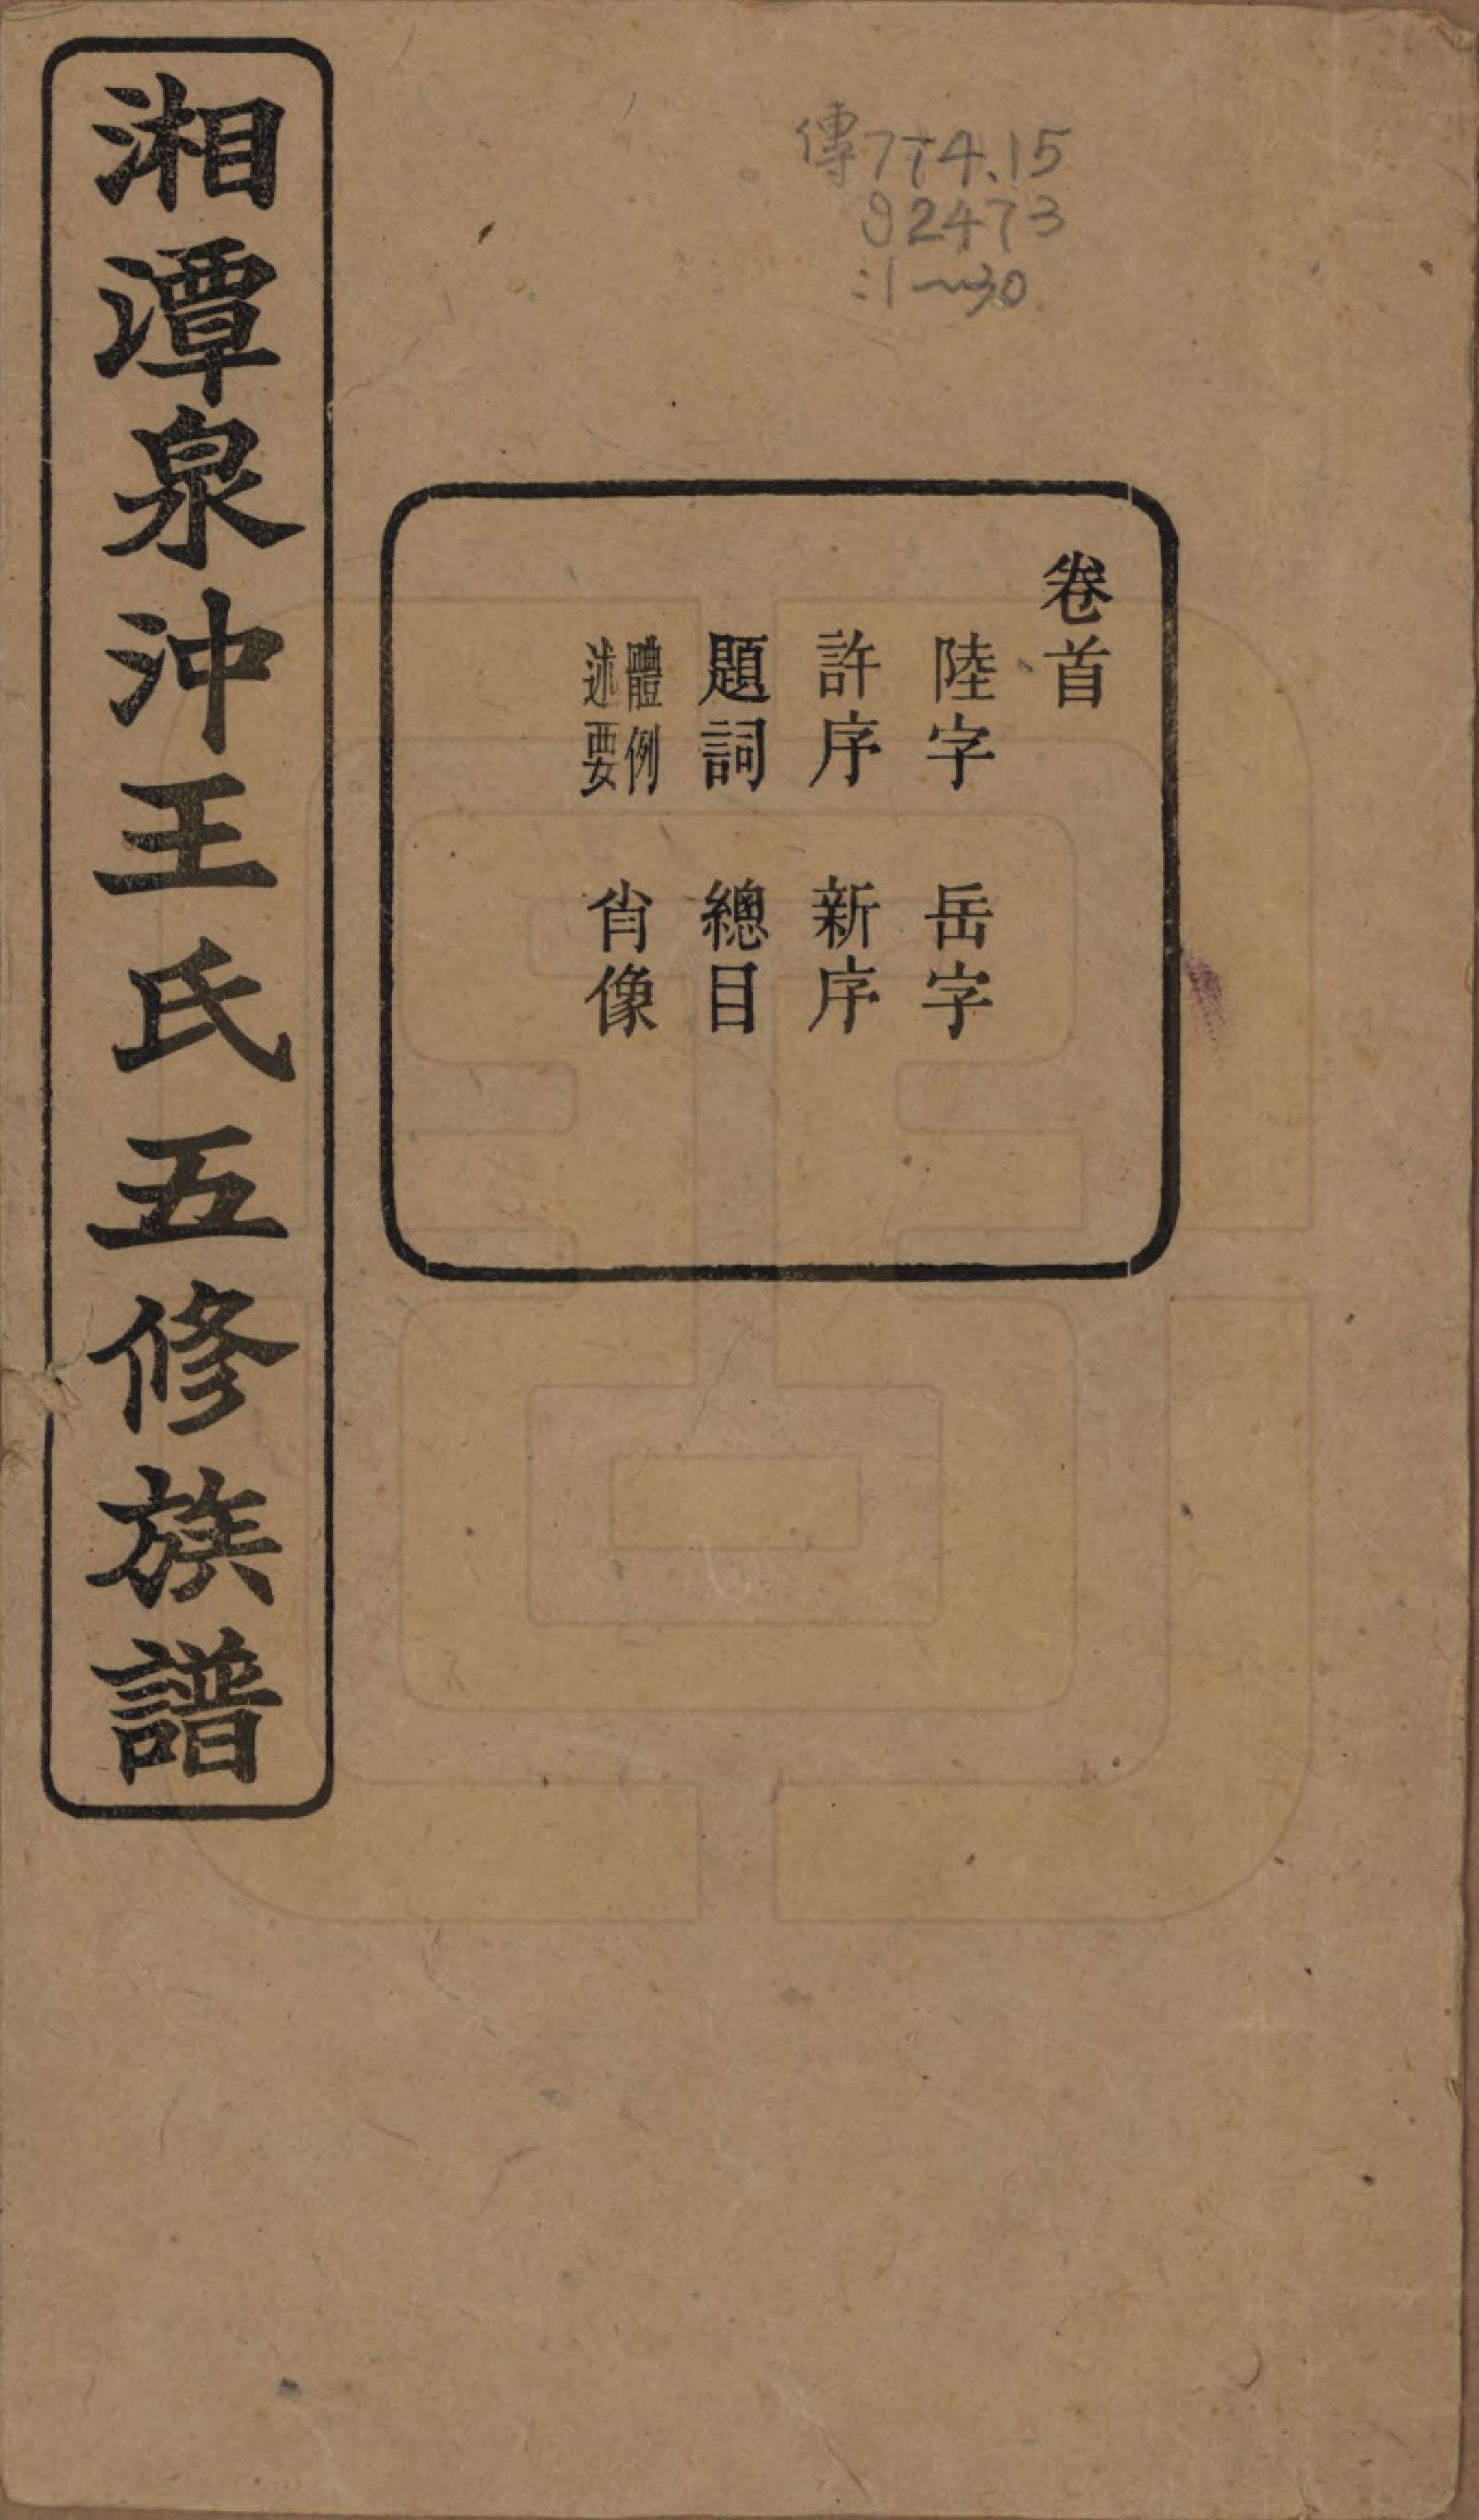 傳774.15
92473
:1～30
卷首
陸字　岳字
許序　新序
題詞　總目
體例述要　肖像
湘潭泉沖王氏五修族譜